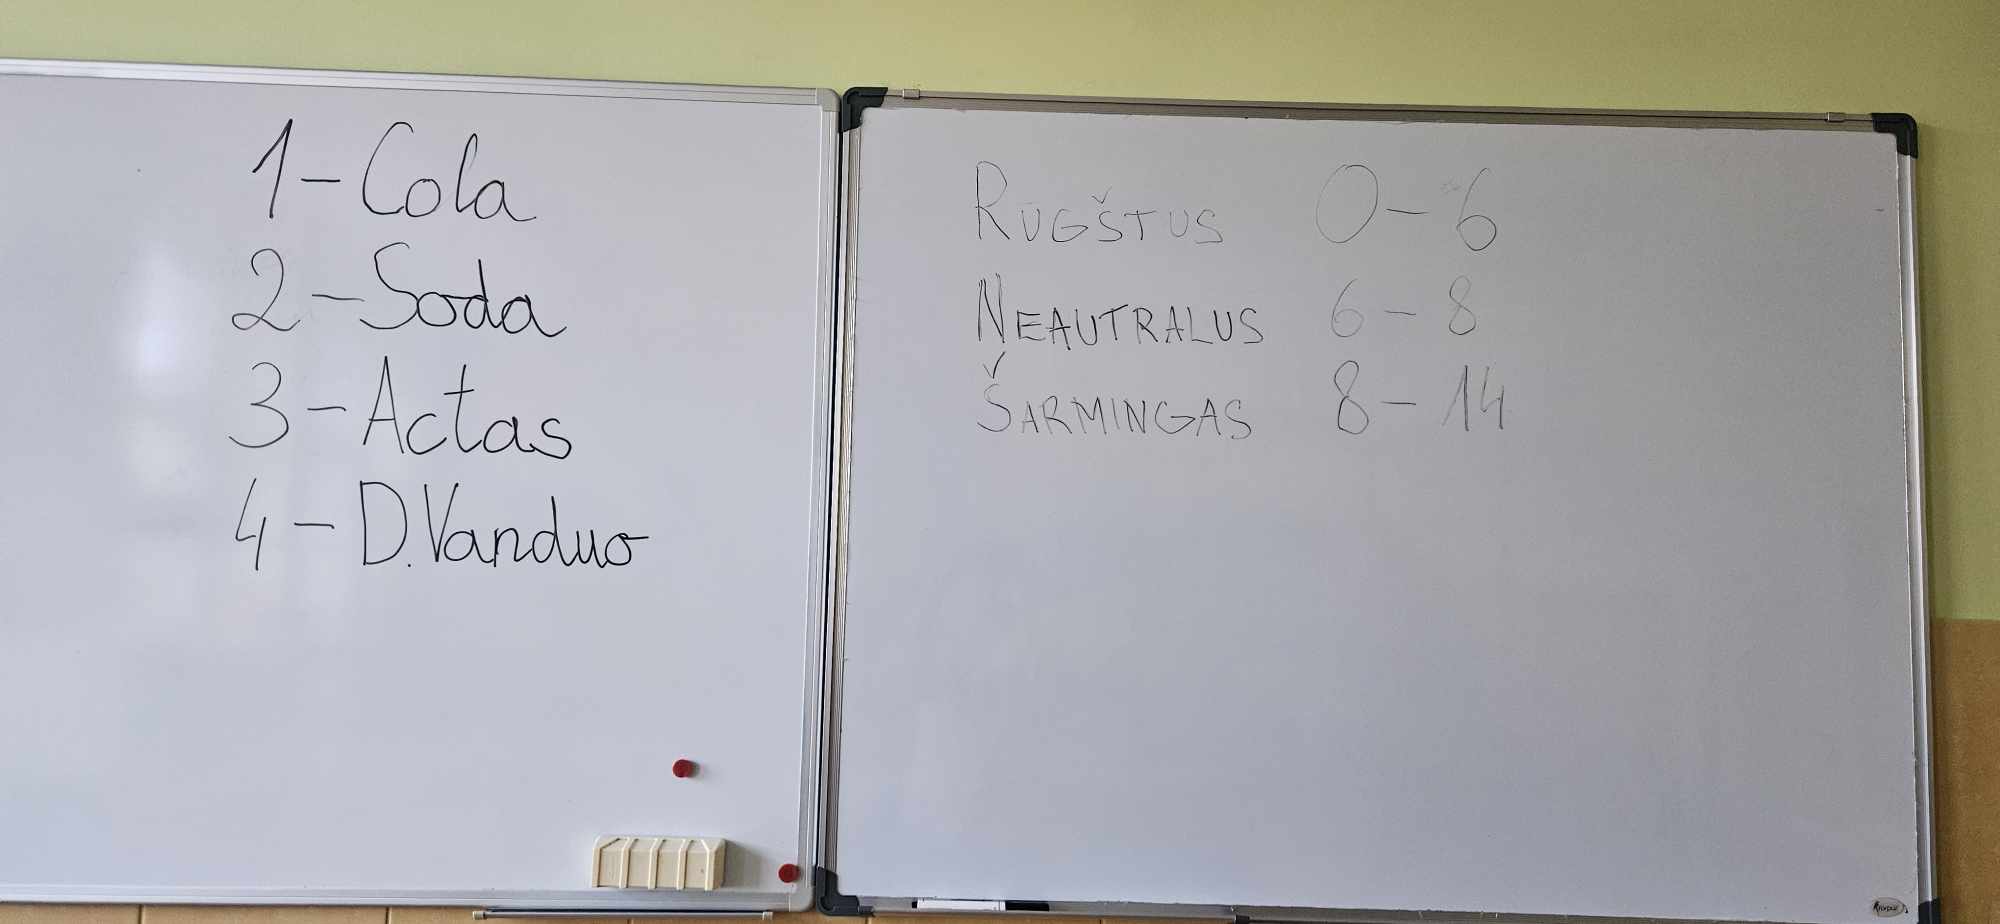 1 - Cola
2 - Soda
3 - Actas
4 - D. Vanduo
RŪGŠTUS 0 - 6
NEAUTRALUS 6 - 8
ŠARMINGAS 8 - 14